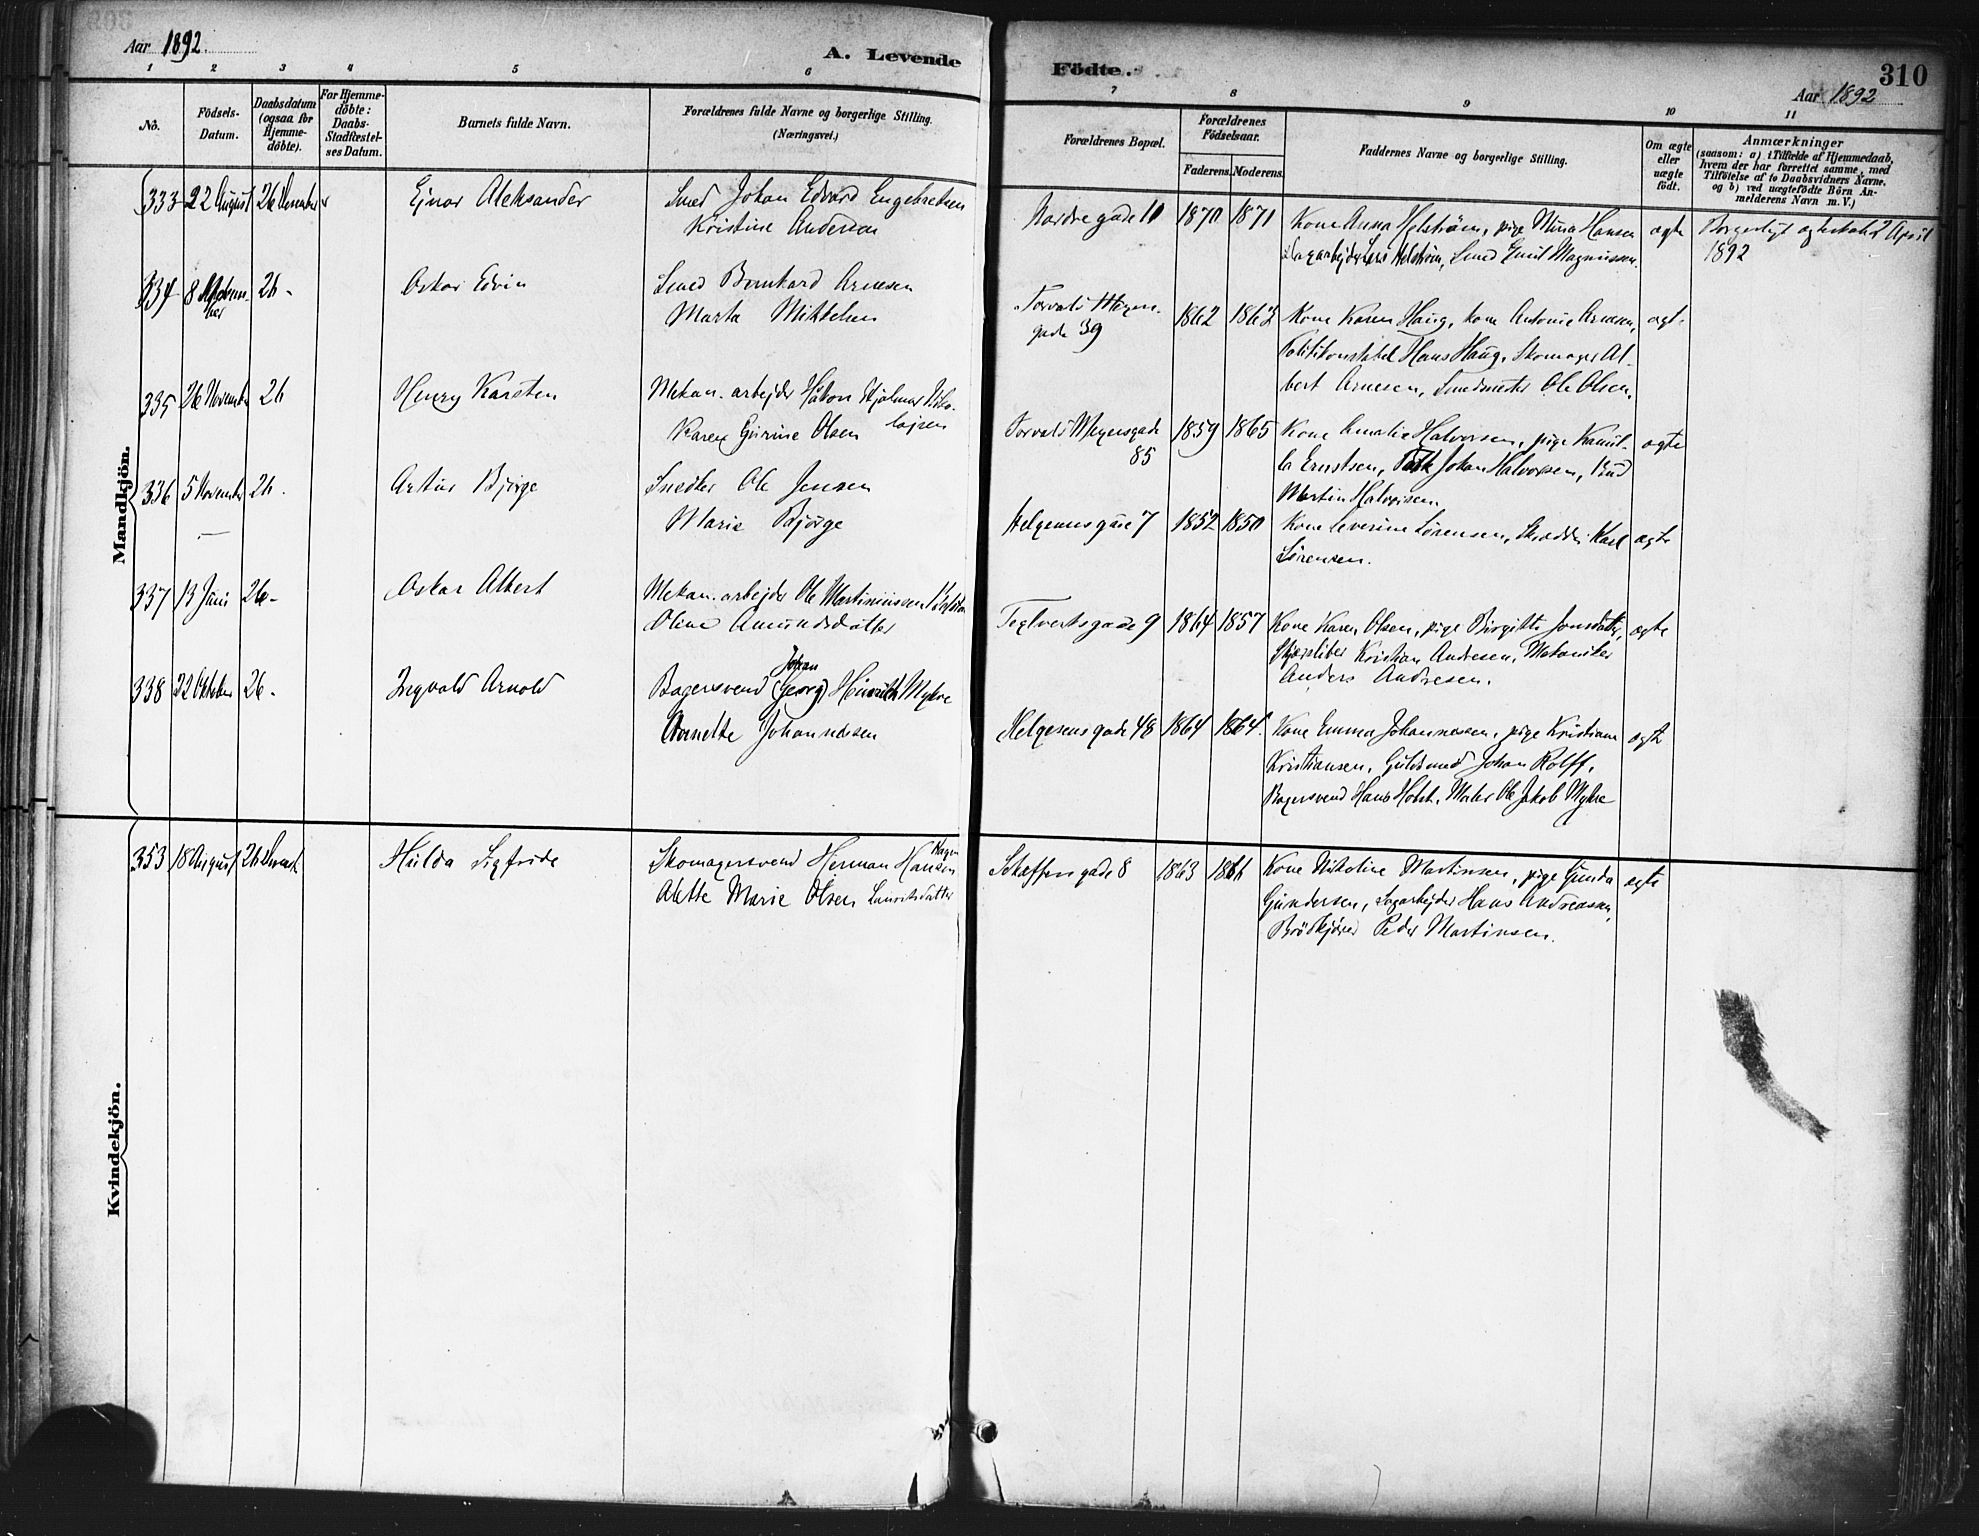 Aar 1892.
A. Levende
Födte.
310
Aar 1892
1 2 3 4 5 6 7 8 9 10 11
No.
Födsels-
Datum.
Daabsdatum
(ogsaa for
Hjemme-
döbte).
For Hjemme-
döbte:
Daabs-
Stadfæstel-
ses Datum.
Barnets fulde Navn.
Forældrenes fulde Navne og borgerlige Stilling.
(Næringsvei.)
Forældrenes Bopæl.
Forældrenes
Födselsaar.
Faderens. Moderens.
Faddernes Navne og borgerlige Stilling.
Om ægte
eller
uægte
födt.
Anmærkninger
(saasom: a) i Tilfælde af Hjemmedaab,
hvem der har forrettet samme, med
Tilföielse af to Daabsvidners Navne,
og b) ved uægtefödte Börn An-
melderens Navn m. V.)
Mandkjön.
333 22 August 26 December Ejnar Aleksander Smed Johan Edvard Engebretsen
Kristine Andersen
Nordregade 10 1870 1871 Kone Anna Helström, pige Mina Hansen ægte Borgerligt ægteskab 2 April
Lars Helström, Smed Emil Magnussen. 1892
334 8 26 - Oskar Edvin Smed Bernhard Arnesen
Marta Mikkelsen
Torvald Meyers-
gade 39 1862 1863 Kone Karen Haug, kone Antonie Arnesen, ægt.
Politikonstabel Hans Haug, Skomager Al-
bert Arnesen, Smedmester Ole Olsen.
335 26 November 26 Henry Karsten Mekan. arbejder Håkon Hjalmar Niko-
lajsen
Karen Gurine Olsen
Torvald Meyersgade
85 1859 1865 Kone Amalie Halvorsen, pige Kamil- ægte
la Ernstsen, Johan Halvorsen, Bud
Martin Halvorsen.
336 5 November 26. Artur Bjørge Snedker Ole Jensen
Marie Bjørge
Helgesensgade 7 1852 1850 Kone Severine Sörensen, Skrædder Karl ægte
Sörensen.
337 13 Juni 26 - Oskar Albert Mekan. arbejder Ole Martiniussen
Oline Amundsdatter
Teglverksgade 9 1864 1857 Kone Karen Olsen, pige Birgitte Jonsdatter, ægte
Skjærsliber Kristian Andresen, Mekaniker
Anders Andresen.
338 22 Oktober 26 - Ingvald Arnold Bagersvend (Georg) Johan Heinrich Myhre
Anette Johannesen
Helgesensgade 48 1864 1864. Kone Emma Johannesen, pige Kristiane ægte
Kristiansen, Guldsmed Johan Rolff,
Bagersvend Hans Holst, Maler Ole Jakob Myhre
Kvindekjön.
353 18 August 26 Decemb Hulda Sigfride Skomagersvend Herman Hansen Hagen
Alette Marie Olsen Lauritsdatter
Schæffersgade 8 1863 1866 Kone Nikoline Martinsen, pige Gunda ægte
Gundersen, Sagarbejder Hans Andreassen,
Brödkjörer Peder Martinsen.